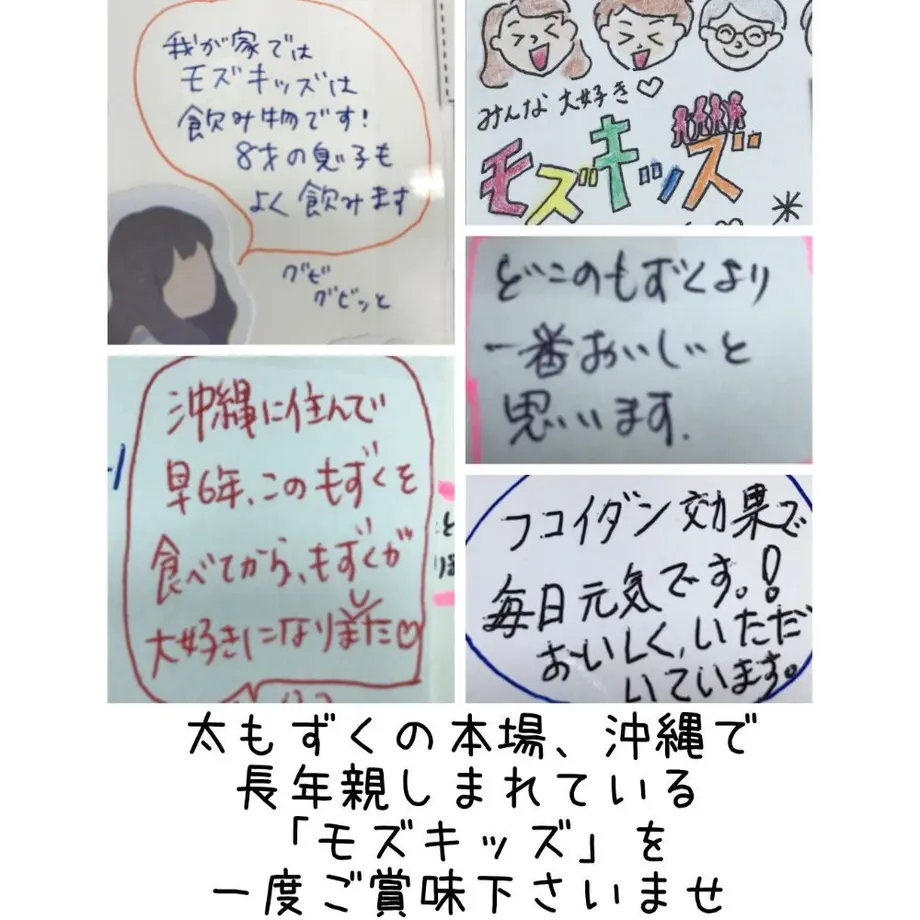 我が家では
モズキッズは
飲み物です!
8才の息子も
よく飲みます
グビ
グビッと
みんな大好き♡
モズキッズ
どこのもずくより
一番おいしいと
思います.
沖縄に住んで
早6年、このもずくを
食べてから、もずくが
大好きになりました♡
フコイダン効果で
毎日元気です。!
おいしく、いただ
いています。
太もずくの本場、沖縄で
長年親しまれている
「モズキッズ」を
一度ご賞味下さいませ